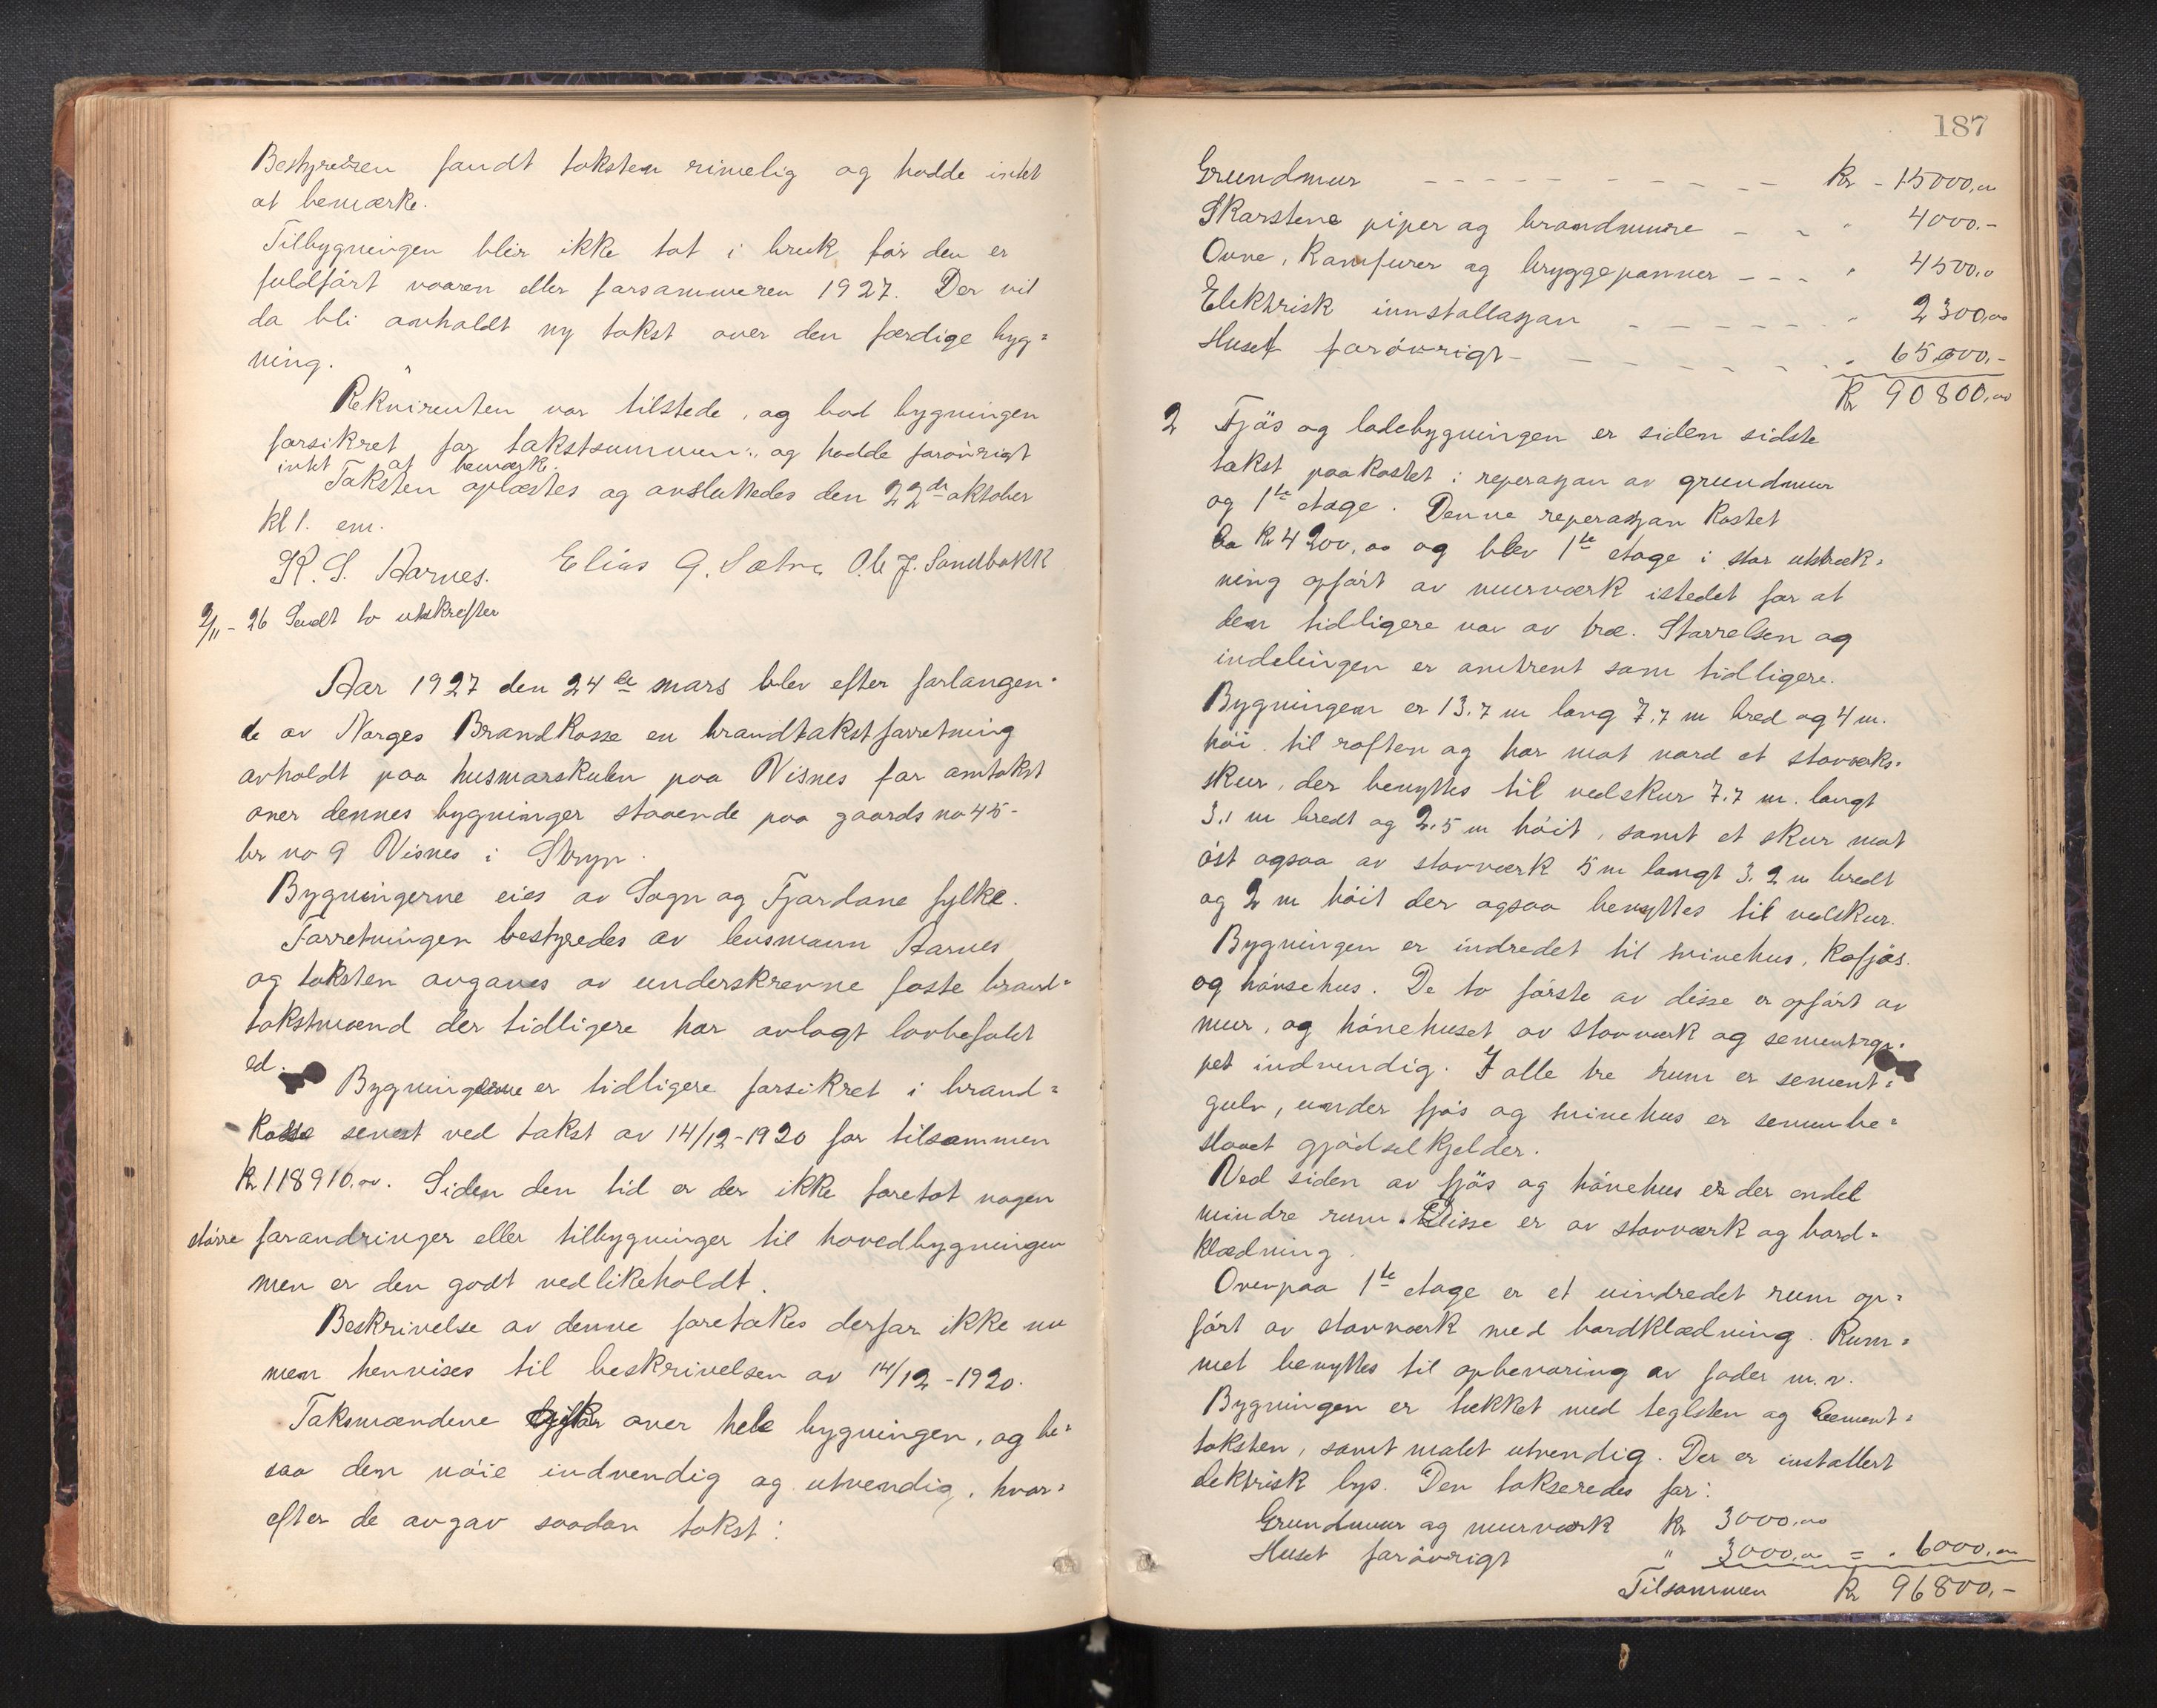 Bestyrelsen fandt taksten rimelig og hadde intet
at bemærke.
Tilbygningen blir ikke tat i bruk før den er
fuldført vaaren eller forsommeren 1927. Der vil
da bli avholdt ny takst over den færdige byg=
ning.
Rekvirenten var tilstede, og bad bygningen
forsikret for takstsummen, og hadde forøvrigt
intet at bemærke.
Taksten oplæstes og avsluttedes den 22de oktober
kl 1. em.
K. S. Aarnes. Elias G. Sætre Ole J. Sandbakk
2/11-26 Sendt to utskrefter
Aar 1927 den 24de mars blev efter forlangen-
de av Norges Brandkasse en brandtakstforretning
avholdt paa husmorskulen paa Visnes for omtakst
over dennes bygninger staaende paa gaards no 45-
br no 9 Visnes i Stryn.
Bygningerne eies av Sogn og Fjordane fylke.
Forretningen bestyredes av lensmann Aarnes
og taksten avgaves av underskrevne faste brand=
takstmænd der tidligere har avlagt lovbefalt
ed.
Bygningerne er tidligere forsikret i brand=
kasse senest ved takst av 14/12-1920 for tilsammen
kr 118910,00. Siden den tid er der ikke foretat nogen
større forandringer eller tilbygninger til hovedbygningen
men er den godt vedlikeholdt.
Beskrivelse av denne foretakes derfor ikke nu
men henvises til beskrivelsen av 14/12-1920.
Taksmændene gik over hele bygningen, og be=
saa den nøie indvendig og utvendig, hvor=
efter de avgav saadan takst:
187
Grundmur - - - - - - - - - kr - 15000,00
Skarstene piper og brandmure - - " 4000.-
Ovne, Kamfurer og bryggepanner - - - " 4500,00
Elektrisk innstallasjon - - - - - - " 2300,00
Huset forøvrigt - - - - - - - " 65000.-
Kr 90800,00
2 Fjös og ladebygningen er siden sidste
takst paakostet i reperasjon av grundmur
og 1te etage. Denne reperasjon kostet
Ca kr 4200,00 og blev 1te etage i stor utstræk=
ning opført av murværk istedet for at
den tidligere var av træ. Størrelsen og
indelingen er omtrent som tidligere.
Bygningen er 13.7 m lang 7.7 m bred og 4 m.
høi til roften og har mot nord et stavværks-
skur, der benyttes til vedskur 7.7 m. langt
3.1 m bredt og 2.5 m høit, samt et skur mot
øst ogsaa av stavværk 5 m langt 3.2 m bredt
og 2 m høit der ogsaa benyttes til vedskur.
Bygningen er indredet til svinehus, Kofjøs.
og hønsehus. De to første av disse er opført av
mur, og hønehuset av stavværk og sementrap-
pet indvendig. I alle tre rum er sement=
gulv, under fjøs og svinehus er sementbe=
slaaet gjødselkjelder.
Ved siden av fjös og hønehus er der endel
mindre rum. Disse er av stavværk og bord=
klædning.
Ovenpaa 1te etage er et uindredet rum op=
ført av stavværk med bordklædning. Rum=
met benyttes til opbevaring av foder m.v.
Bygningen er tækket med teglsten og Cement=
taksten, samt malet utvendig. Der er installert
elektrisk lys. Den takseredes for:
Grundmur og murværk kr 3000,00
Huset forøvrigt " 3000,00 = " 6000,00
Tilsammen Kr 96800,-